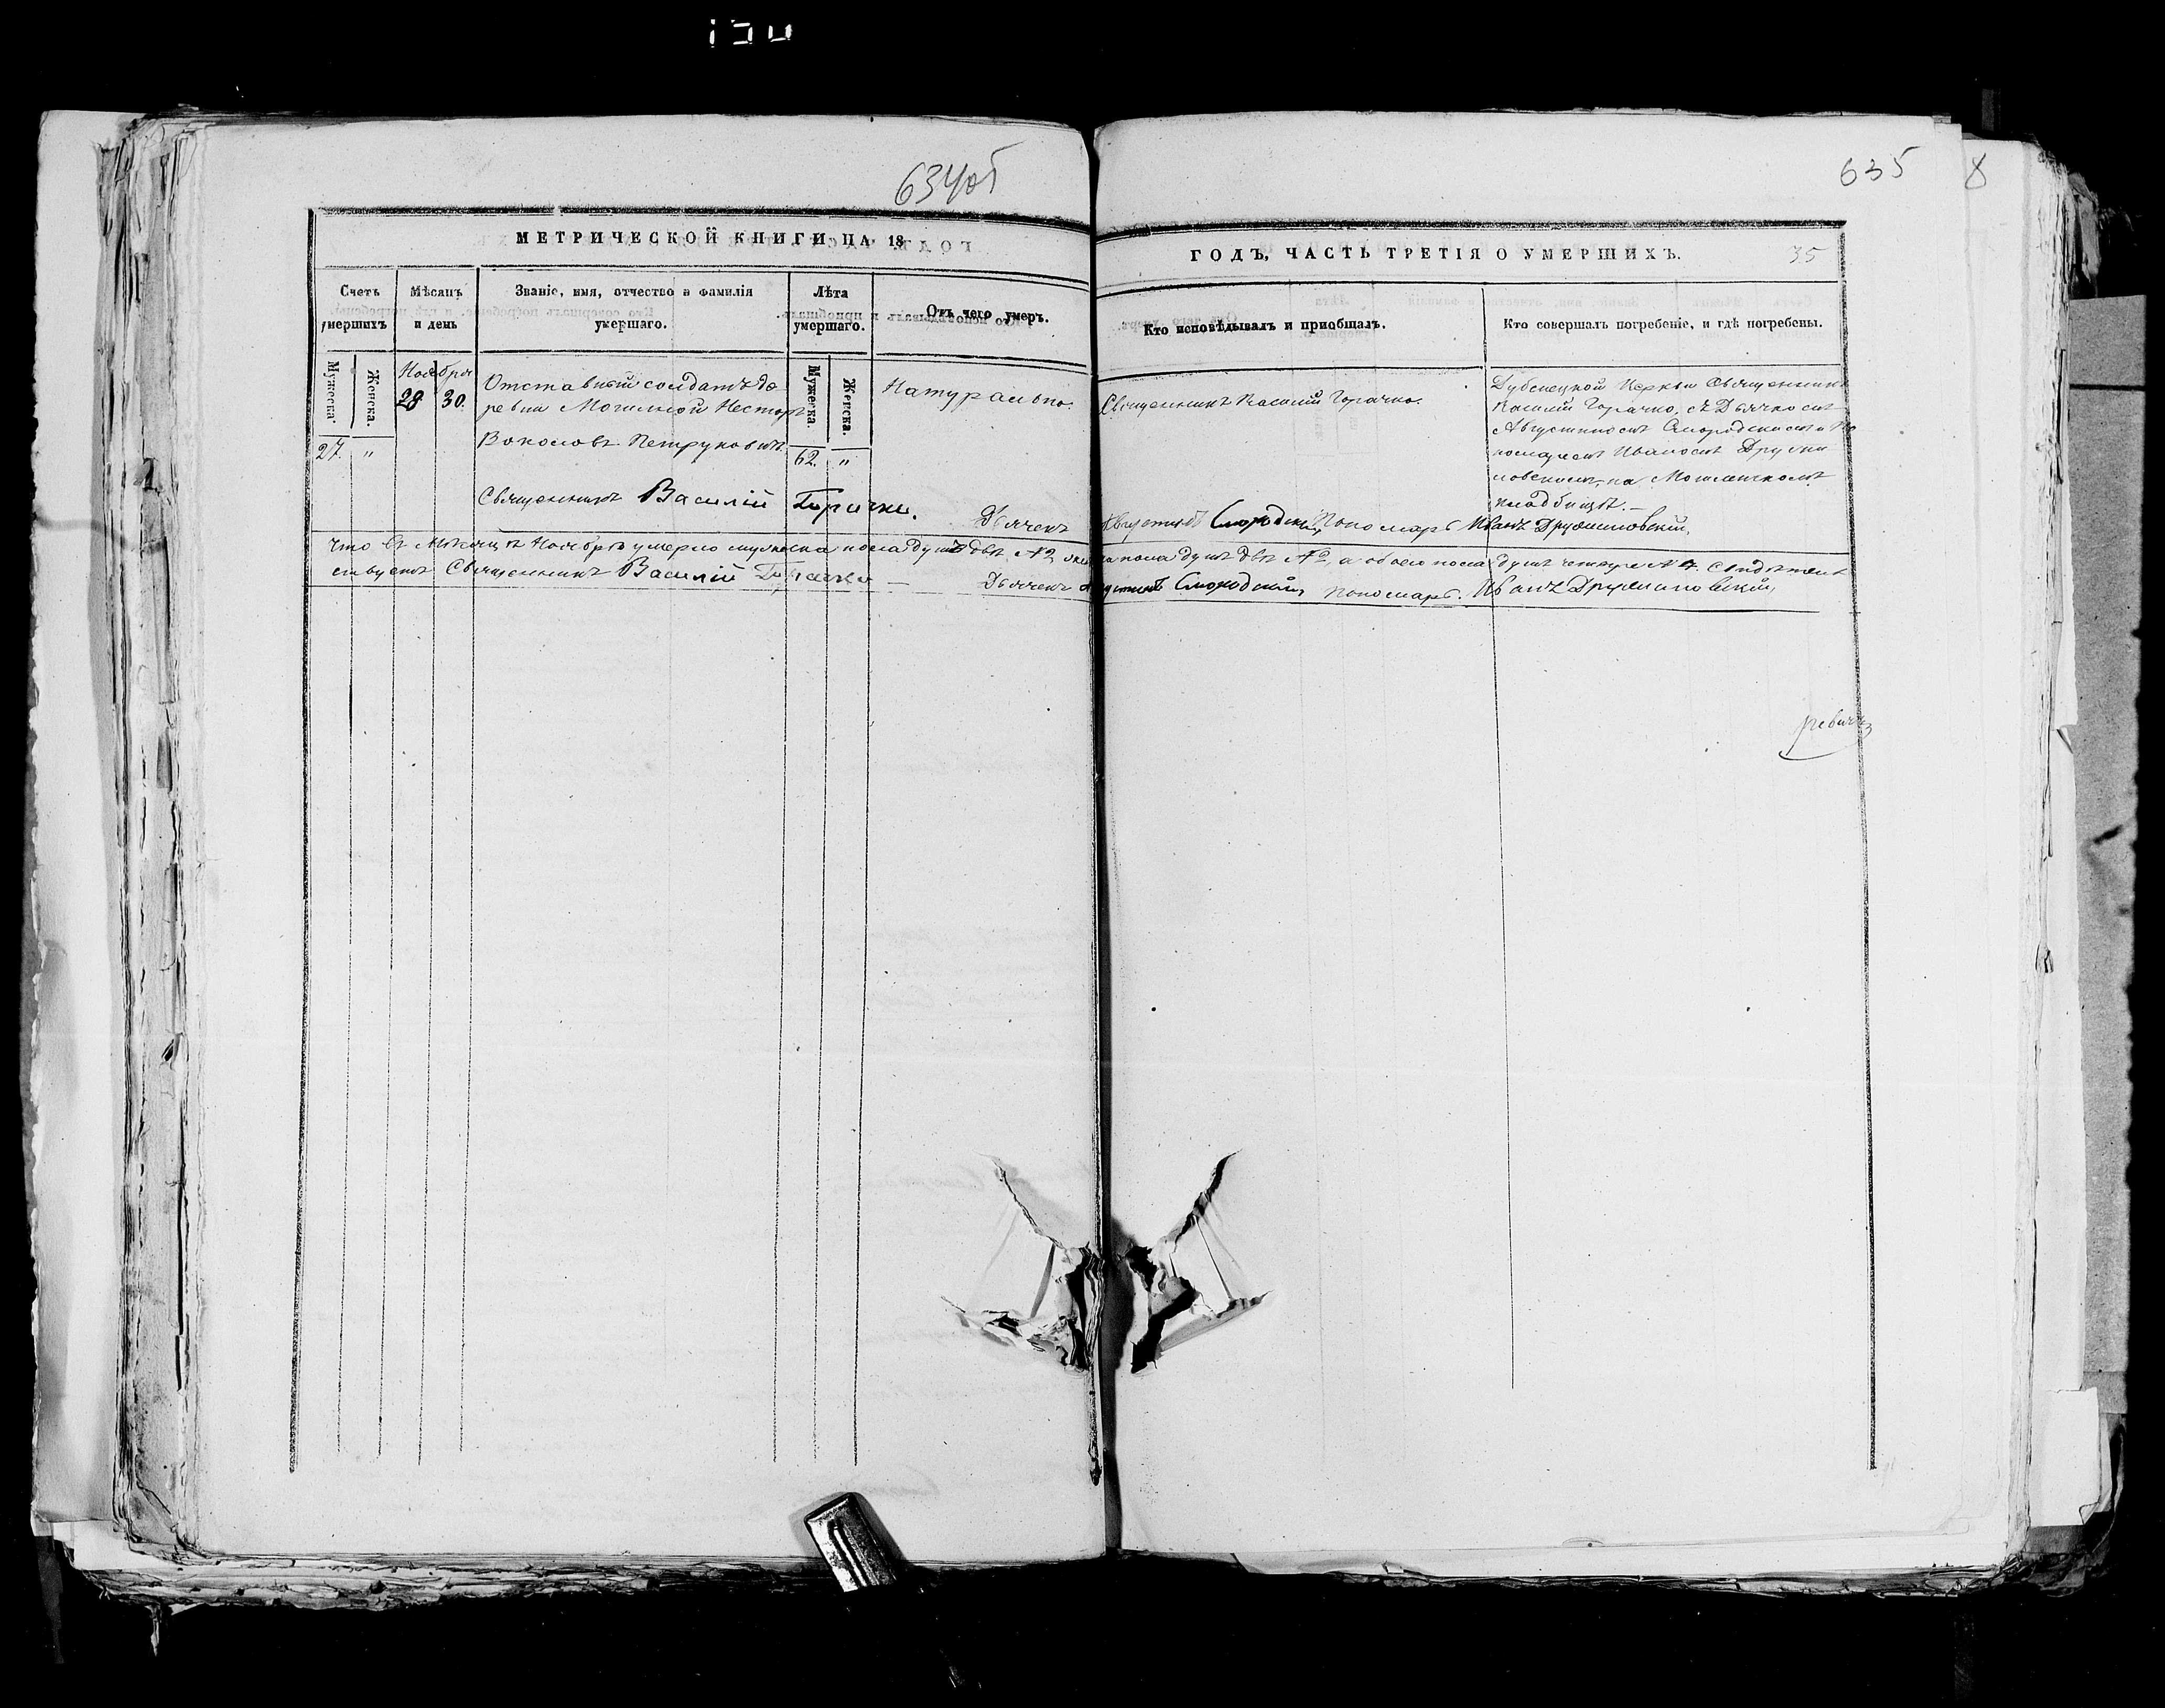 634об
635
8
МЕТРИЧЕСКОЙ КНИГИ НА 18
ГОДЪ, ЧАСТЬ ТРЕТІЯ О УМЕРШИХЪ.
35
Счетъ умершихъ
Мѣсяцъ и день
Званіе, имя, отчество и фамилія умершаго.
Лѣта умершаго.
Отъ чего умеръ.
Кто исповѣдывалъ и пріобщалъ.
Кто совершалъ погребеніе, и гдѣ погребены.
Мужеска.
Женска.
Ноября
28
30.
Мужеска.
Женска.
27.
"
Отставный солдатъ де
ревни Могильной Несторъ
Петруковичъ.
62.
"
Натурально.
Священникъ Василій Горачко.
Церкви Священникъ
Василій Горачко, съ Дьячкомъ
Августиномъ Смородскимъ и По
номаремъ Иваномъ Друси
ловскимъ, на
кладбищѣ.
Священникъ Василій Горачко.
Дьячекъ Августинъ Смородскій, Пономарь Иванъ
Что въ Мѣсяцѣ Ноябрѣ умерло мужеска пола душъ двѣ № 2, женска пола душъ двѣ № 2, а обоего пола душъ четыре № 4. Свидѣтель
ствуемъ Священникъ Василій Горачко
Дьячекъ Августинъ Смородскій, Пономарь. Иванъ
ревичъ